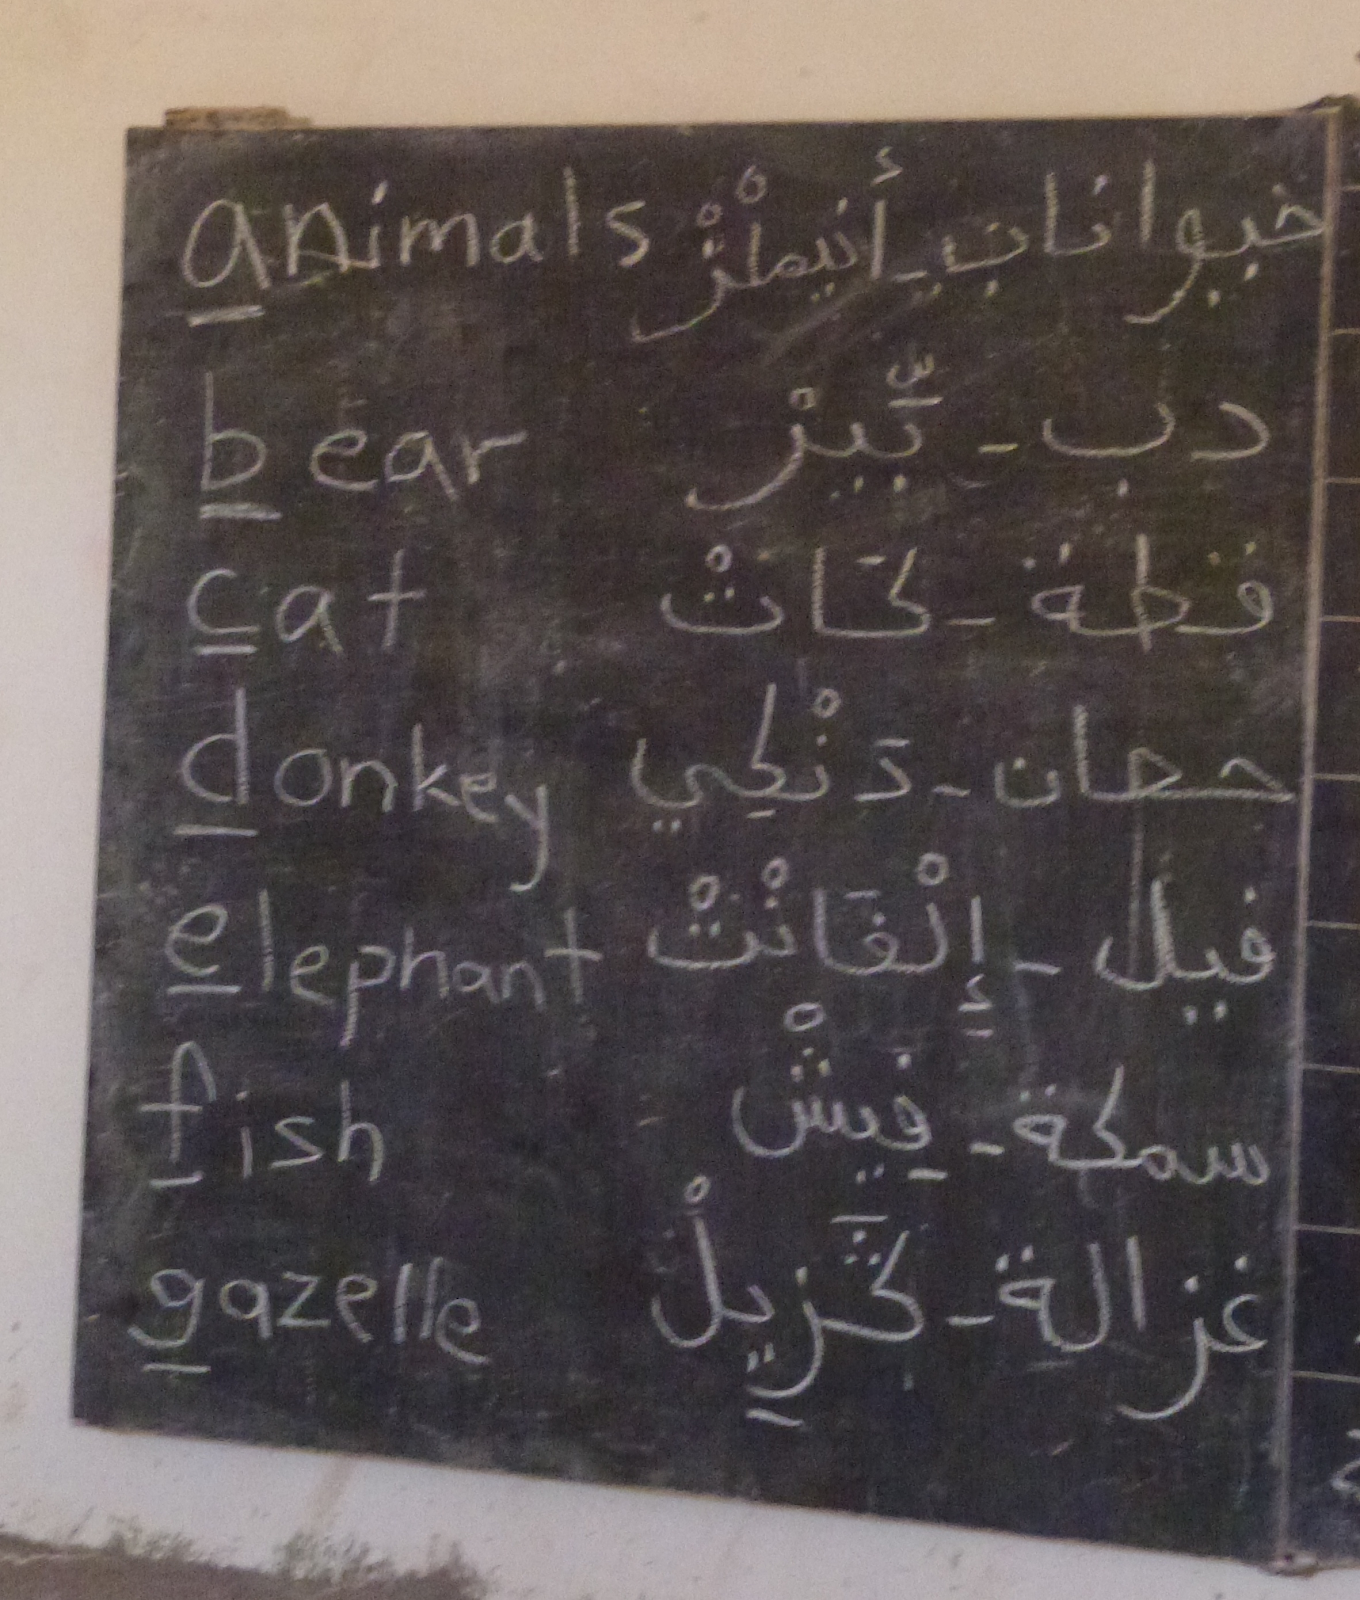 animals حيوانات - أنيملْزْ
bear دب - بِّيرْ
cat قطة - كَاتْ
donkey حصان - دَنْكي
elephant فيل - إلْفَانْتْ
fish سمكة - فِيشْ
gazelle غزالة - كَزِيلْ